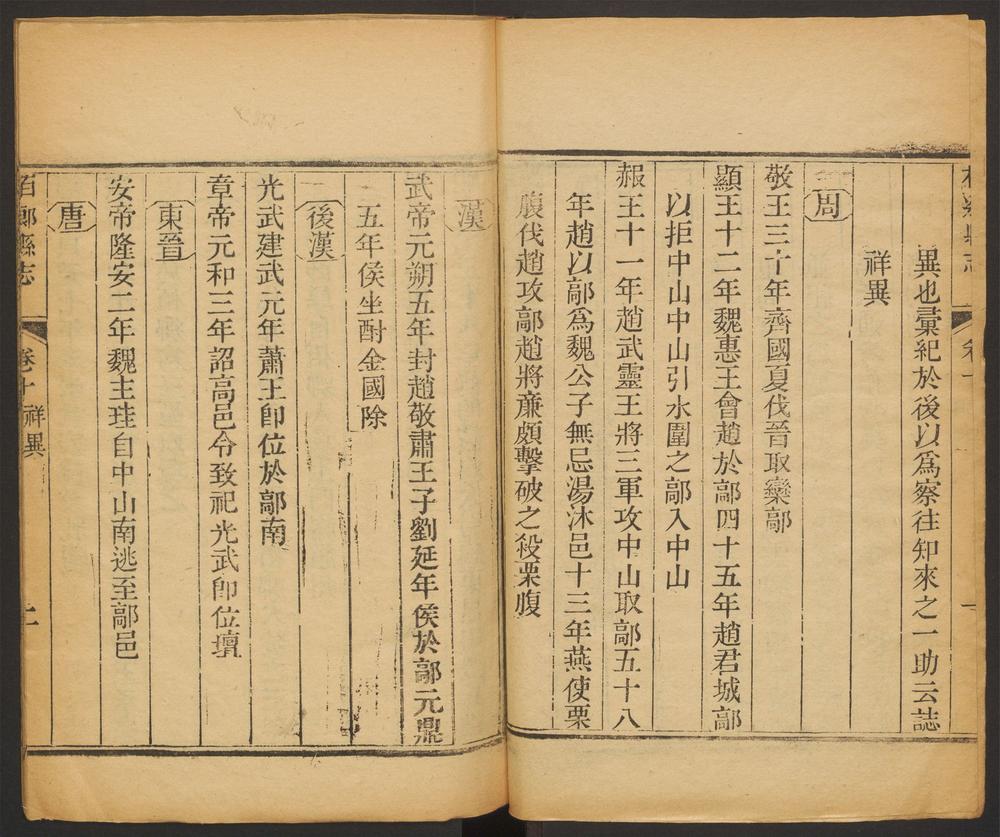 異也彚紀於後以爲察往知來之一助云誌
祥異
周
敬王三十年齊國夏伐晉取欒鄗
顯王十二年魏惠王會趙於鄗四十五年趙君城鄗
以拒中山中山引水圍之鄗入中山
赧王十一年趙武靈王將三軍攻中山取鄗五十八
年趙以鄗爲魏公子無忌湯沐邑十三年燕使栗
腹伐趙攻鄗趙將廉頗擊破之殺栗腹
漢
武帝元朔五年封趙敬肅王子劉延年侯於鄗元鼎
五年侯坐酎金國除
後漢
光武建武元年蕭王卽位於鄗南
章帝元和三年詔高邑令致祀光武卽位壇
東晉
安帝隆安二年魏主珪自中山南逃至鄗邑
唐
縣志
卷十
祥異